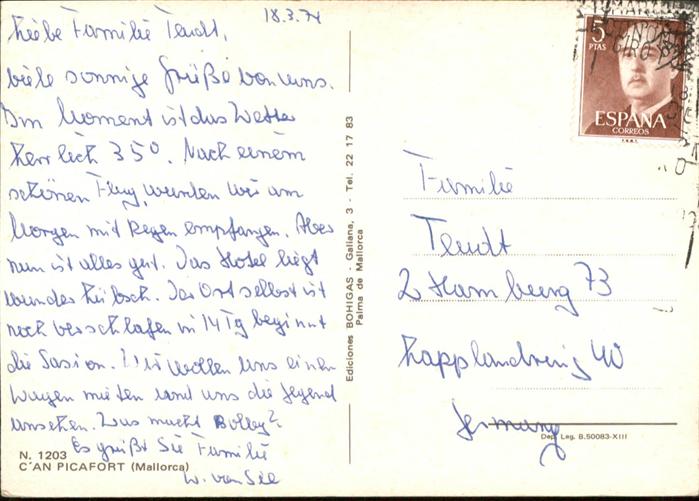 18.3.74
Liebe Familie Tendt,
viele sonnige Grüße von uns.
Im Moment ist das Wetter
herrlich 35°. Nach einem
schönen Flug, wurden wir am
Morgen mit Regen empfangen. Aber
nun ist alles gut. Das Hotel liegt
wunderhübsch. Der Ort selbst ist
noch verschlafen in 14 Tg beginnt
die Sasion. Wir wollen uns einen
Wagen mieten und uns die Gegend
ansehen. Was macht Bolly?
Es grüßt Sie Familie
W. van
N. 1203
C'AN PICAFORT (Mallorca)
Ediciones BOHIGAS - Galiana, 3 - Tel. 22 17 83
Palma de Mallorca
5
PTAS
ESPAÑA
CORREOS
Familie
Tendt
2 Hamburg 73
Kapplandring 40
Germany
Dep. Leg. B.50083-XIII